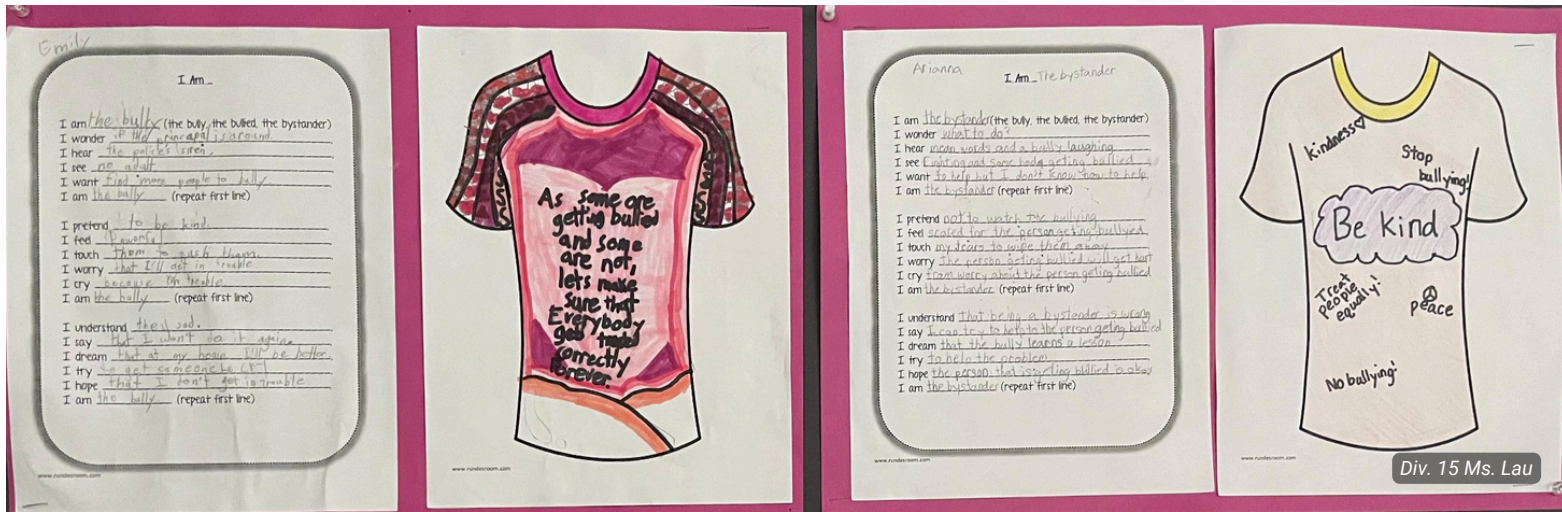 Emily
I Am
I am the bully (the bully, the bullied, the bystander)
I wonder if the princapal is around.
I hear the polices siren.
I see no adult
I want find more people to bully.
I am the bully (repeat first line)
I pretend to be kind.
I feel Powerful
I touch them to push them.
I worry that I'll get in trouble
I cry because I'm trouble.
I am the bully (repeat first line)
I understand the sad.
I say that I won't do it again
I dream that at my I'll be better.
I try to get someone to
I hope that I don't get in trouble
I am the bully (repeat first line)
www.rundesroom.com
As some are
getting bullied
and some
are not,
lets make
sure that
Everybody
get
correctly
forever.
www.rundesroom.com
Arianna
I Am The bystander
I am the bystander (the bully, the bullied, the bystander)
I wonder what to do?
I hear mean words and a bully laughing
I see Eighting and some body geting ballied
I want to help but I don't know how to help
I am the bystander (repeat first line)
I pretend not to watch the bullying
I feel scared for the person geting bullyied
I touch my tears to wipe them away
I worry the person geting bullied will get hurt
I cry from worry about the person geting bullied
I am the bystander (repeat first line)
I understand that being a bystander is wrong
I say I can try to help the person geting bullied
I dream that the bully learns a lesson
I try to help the problem
I hope the person that is geting bullied is okay
I am the bystander (repeat first line)
www.rundesroom.com
kindness
Stop
bullying!
Be kind
Treat
people
equally!
peace
No bullying!
www.rundesroom.com
Div. 15 Ms. Lau